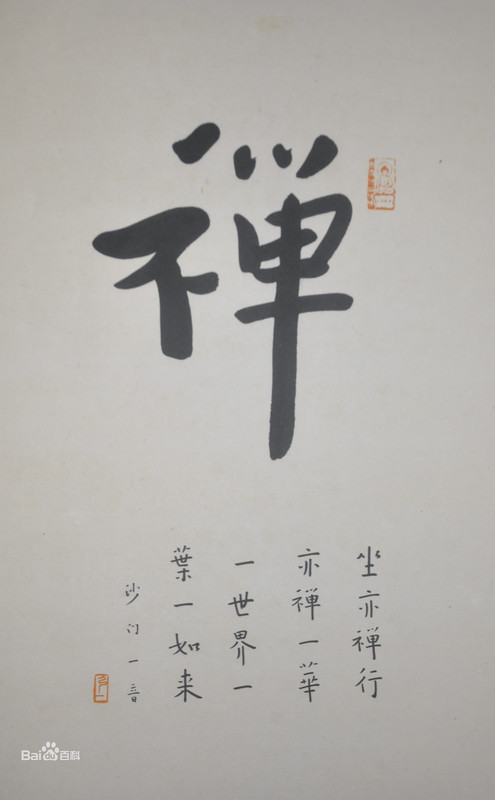 禅
坐亦禅行
亦禅一華
一世界一
葉一如来
沙门一音
Bai百科